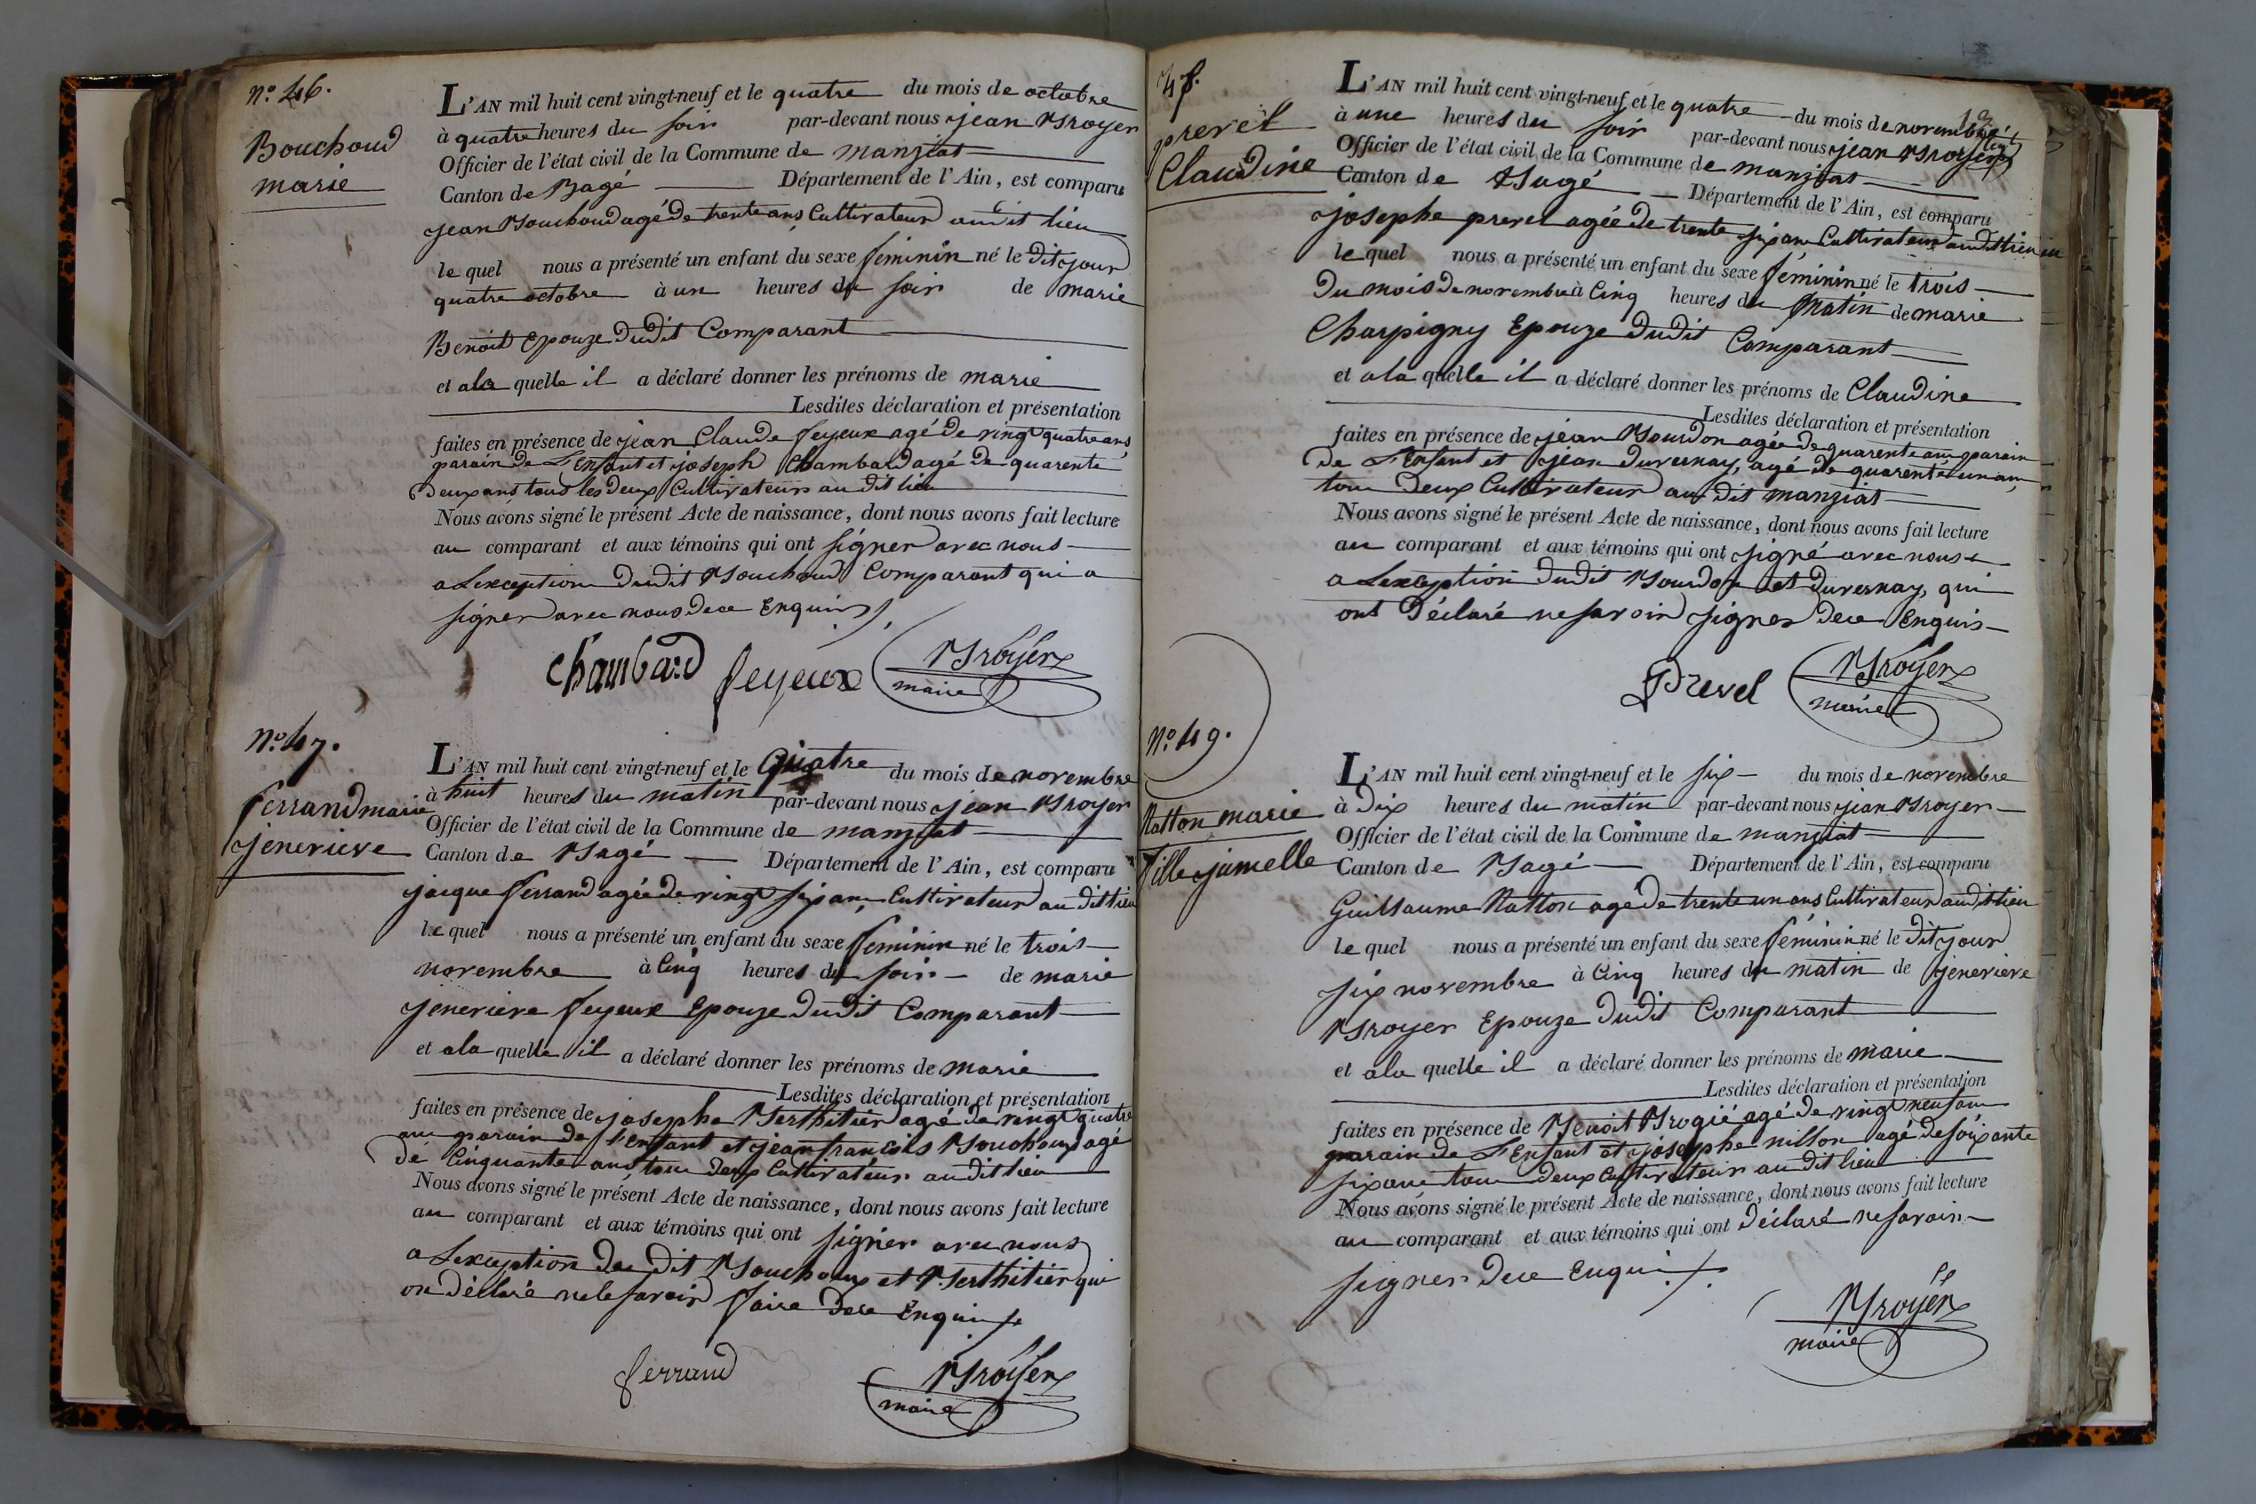 n.° 46.
Bouchoud
marie
L'AN mil huit cent vingt-neuf et le quatre du mois de octobre
à quatre heures du soir par-devant nous jean Broyer
Officier de l'état civil de la Commune de manziat
Canton de Bagé Département de l'Ain, est comparu
jean Bouchoud agé de trente ans Cultivateur audit lieu
le quel nous a présenté un enfant du sexe féminin né le dit jour
quatre octobre à un heures du soir de marie
Benoit Epouze dudit Comparant
et a la quelle il a déclaré donner les prénoms de marie
Lesdites déclaration et présentation
faites en présence de jean Claude feyeux agé de vingt quatre ans
parain de L'Enfant et joseph Chambard agé de quarente
deux ans tous les deux Cultivateurs au dit lieu
Nous avons signé le présent Acte de naissance, dont nous avons fait lecture
au comparant et aux témoins qui ont signer avec nous
a Lexception dudit Bouchoud Comparant qui a
signer avec nous de ce Enquis
Chambard feyeux Broyer
maire
N.° 47.
ferrand marie
jenevieve
L'AN mil huit cent vingt-neuf et le quatre du mois de novembre
à huit heures du matin par-devant nous jean Broyer
Officier de l'état civil de la Commune de manziat
Canton de Bagé Département de l'Ain, est comparu
jacque ferrand agée de vingt six ans Cultivateur au dit lieu
le quel nous a présenté un enfant du sexe feminin né le trois
novembre à Cinq heures du soir de marie
jenevieve feyeux Epouze dudit Comparant
et a la quelle il a déclaré donner les prénoms de marie
Lesdites déclaration et présentation
faites en présence de josephe Berthitier agé de vingt quatre
ans parain de l'Enfant et jean francois Bouchoux agé
de Cinquante ans tous deux Cultivateurs audit lieu
Nous avons signé le présent Acte de naissance, dont nous avons fait lecture
au comparant et aux témoins qui ont signer avec nous
a Lexception du dit Bouchoux et Berthitier qui
on déclaré ne le savoir faire de ce Enquis
ferrand Broyer
maire
48.
prevel
Claudine
L'AN mil huit cent vingt-neuf et le quatre du mois de novembre
à une heures du soir par-devant nous jean Broyer
Officier de l'état civil de la Commune de manziat
Canton de Bagé Département de l'Ain, est comparu
josephe prevel agée de trente six ans Cultivateur au dit lieu
le quel nous a présenté un enfant du sexe féminin né le trois
du mois de novembre à Cinq heures du matin de marie
Charpigny Epouze dudit Comparant
et a la quelle il a déclaré donner les prénoms de Claudine
Lesdites déclaration et présentation
faites en présence de jean Bourdon agée de quarente ans parain
de L'Enfant et jean duvernay, agé de quarente un ans
tous deux Cultivateur au dit manziat
Nous avons signé le présent Acte de naissance, dont nous avons fait lecture
au comparant et aux témoins qui ont signé avec nous
a Lexception dudit Bourdon et duvernay, qui
ont Déclaré ne savoir signer de ce Enquis
Prevel Broyer
maire
N.° 49.
Natton marie
fille jumelle
L'AN mil huit cent vingt-neuf et le six du mois de novembre
à dix heures du matin par-devant nous jean Broyer
Officier de l'état civil de la Commune de manziat
Canton de Bagé Département de l'Ain, est comparu
Guillaume Natton agé de trente un ans Cultivateur au dit lieu
le quel nous a présenté un enfant du sexe féminin né le dit jour
six novembre à Cinq heures du matin de jenevieve
Broyer Epouze dudit Comparant
et a la quelle il a déclaré donner les prénoms de marie
Lesdites déclaration et présentation
faites en présence de Benoit Brogié agé de vingt neuf ans
parain de L'Enfant et josephe nitton agé de soixante
six ans tous deux Cultivateur au dit lieu
Nous avons signé le présent Acte de naissance, dont nous avons fait lecture
au comparant et aux témoins qui ont déclaré ne savoir
signer de ce Enquis
Broyer
maire